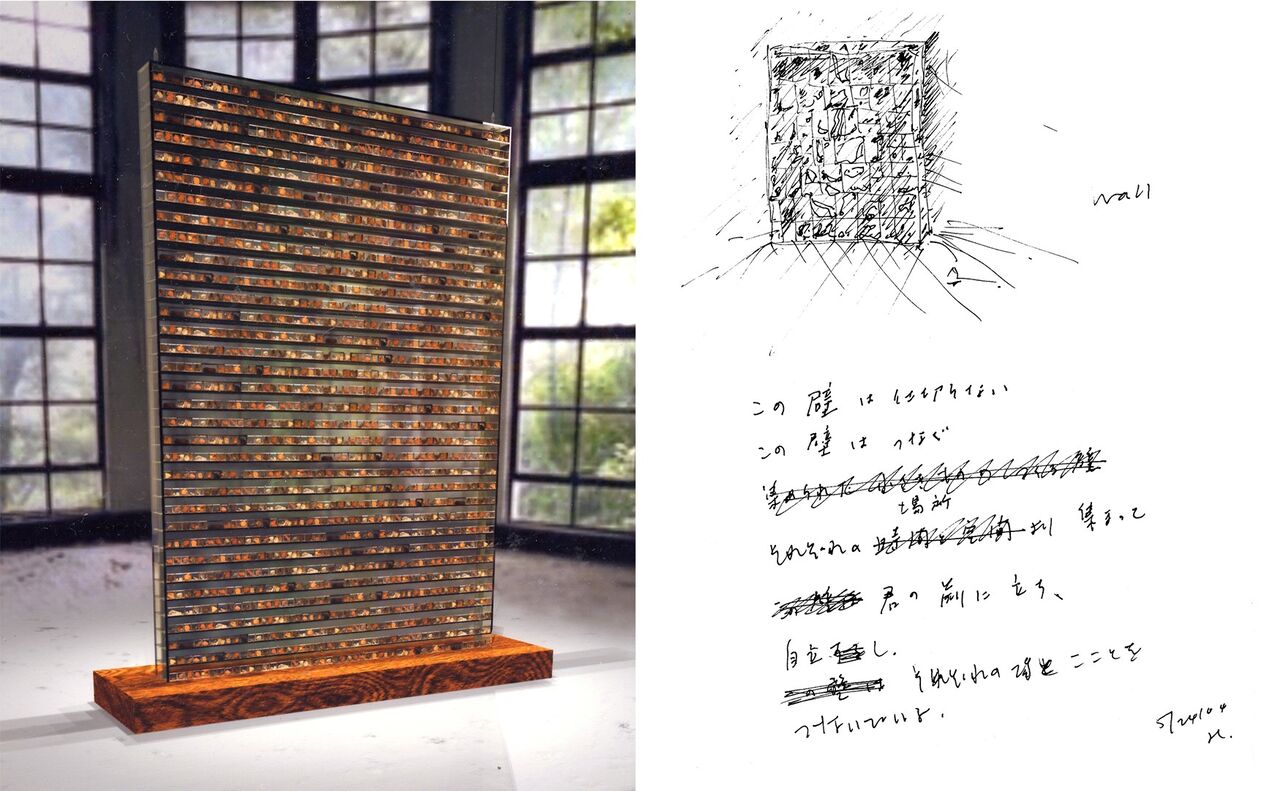 wall
この 壁 は 仕切らない
この 壁 は つなぐ
場所
それぞれの より 集まって
君の 前に 立ち、
自立 し、
それぞれの 場と こことを
つないでいる.
5/24/04
H.